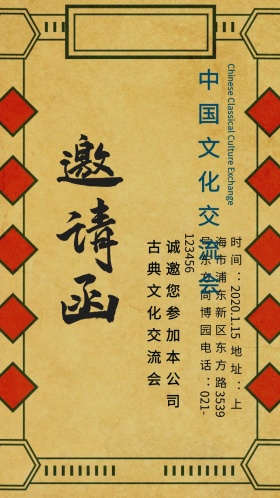 Chinese Classical Culture Exchange
中国文化交流会
时间：2020.1.15 地址：上
海市浦东新区东方路3539
号东方尚博园电话：021-
123456
诚邀您参加本公司
古典文化交流会
邀请函